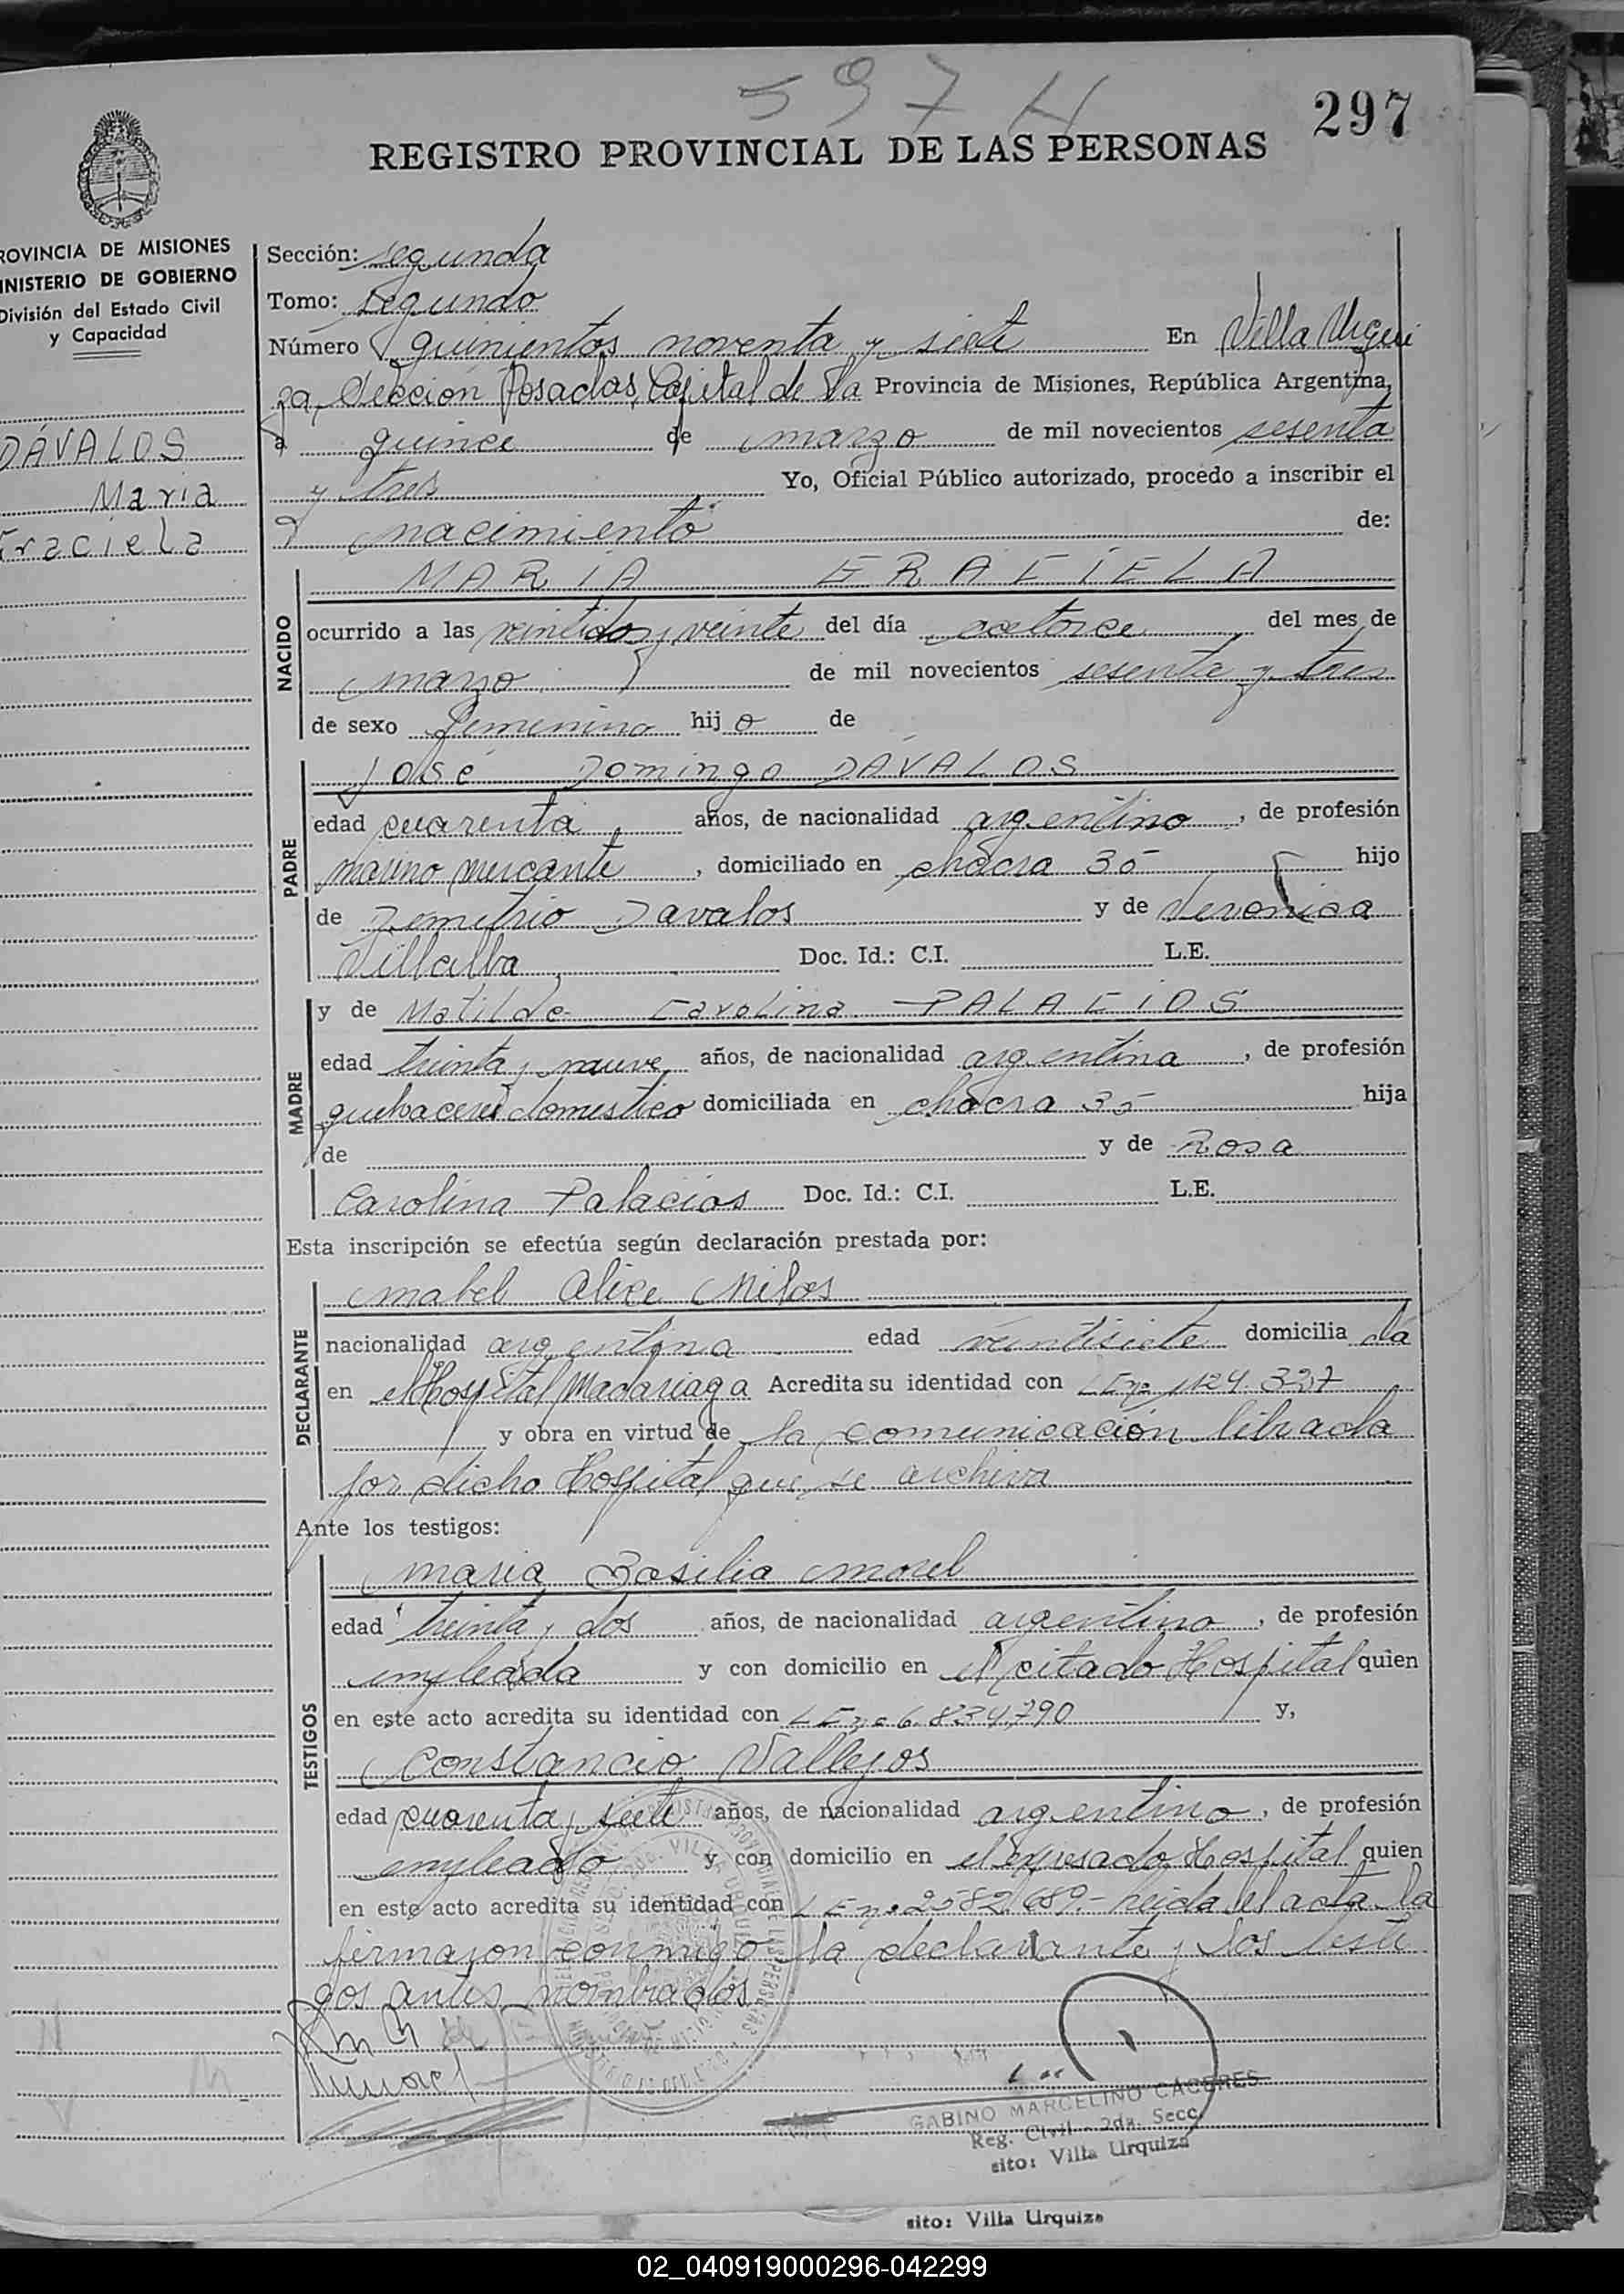 597 H
297
REGISTRO PROVINCIAL DE LAS PERSONAS
ROVINCIA DE MISIONES
INISTERIO DE GOBIERNO
División del Estado Civil
y Capacidad
DÁVALOS
Maria
Graciela
Sección: segunda
Tomo: segundo
Número quinientos noventa y siete En Villa Urqui
za, Sección Posadas, Capital de la Provincia de Misiones, República Argentina,
a quince de marzo de mil novecientos sesenta
y tres Yo, Oficial Público autorizado, procedo a inscribir el
nacimiento de:
NACIDO
MARIA GRACIELA
ocurrido a las veintidos y veinte del día catorce del mes de
marzo de mil novecientos sesenta y tres
de sexo femenino hijo de
PADRE
José Domingo DÁVALOS
edad cuarenta años, de nacionalidad argentino, de profesión
marino mercante, domiciliado en chacra 35 hijo
de Demetrio Davalos y de Veronica
Villalba Doc. Id.: C.I. L.E.
MADRE
y de Matilde Carolina PALACIOS
edad treinta y nueve años, de nacionalidad argentina, de profesión
quehaceres domestico domiciliada en chacra 35 hija
de y de Rosa
Carolina Palacios Doc. Id.: C.I. L.E.
Esta inscripción se efectúa según declaración prestada por:
DECLARANTE
Mabel Alice Milos
nacionalidad argentina edad veintisiete domicilia da
en el Hospital Madariaga Acredita su identidad con LE nº
y obra en virtud de la comunicación librada
por dicho Hospital que se archiva
Ante los testigos:
TESTIGOS
Maria Basilia Morel
edad treinta y dos años, de nacionalidad argentino, de profesión
empleada y con domicilio en el citado Hospital quien
en este acto acredita su identidad con LE nº 6.834.790 y,
Constancio Vallejos
edad cuarenta y siete años, de nacionalidad argentino, de profesión
empleado y con domicilio en el expresado Hospital quien
en este acto acredita su identidad con LE nº 2582.689.- leida el acta la
firmaron conmigo la declarante y los testi
gos antes nombrados
GABINO MARCELINO CACERES
Reg. Civil - 2da. Secc.
sito: Villa Urquiza
sito: Villa Urquiza
02_040919000296-042299